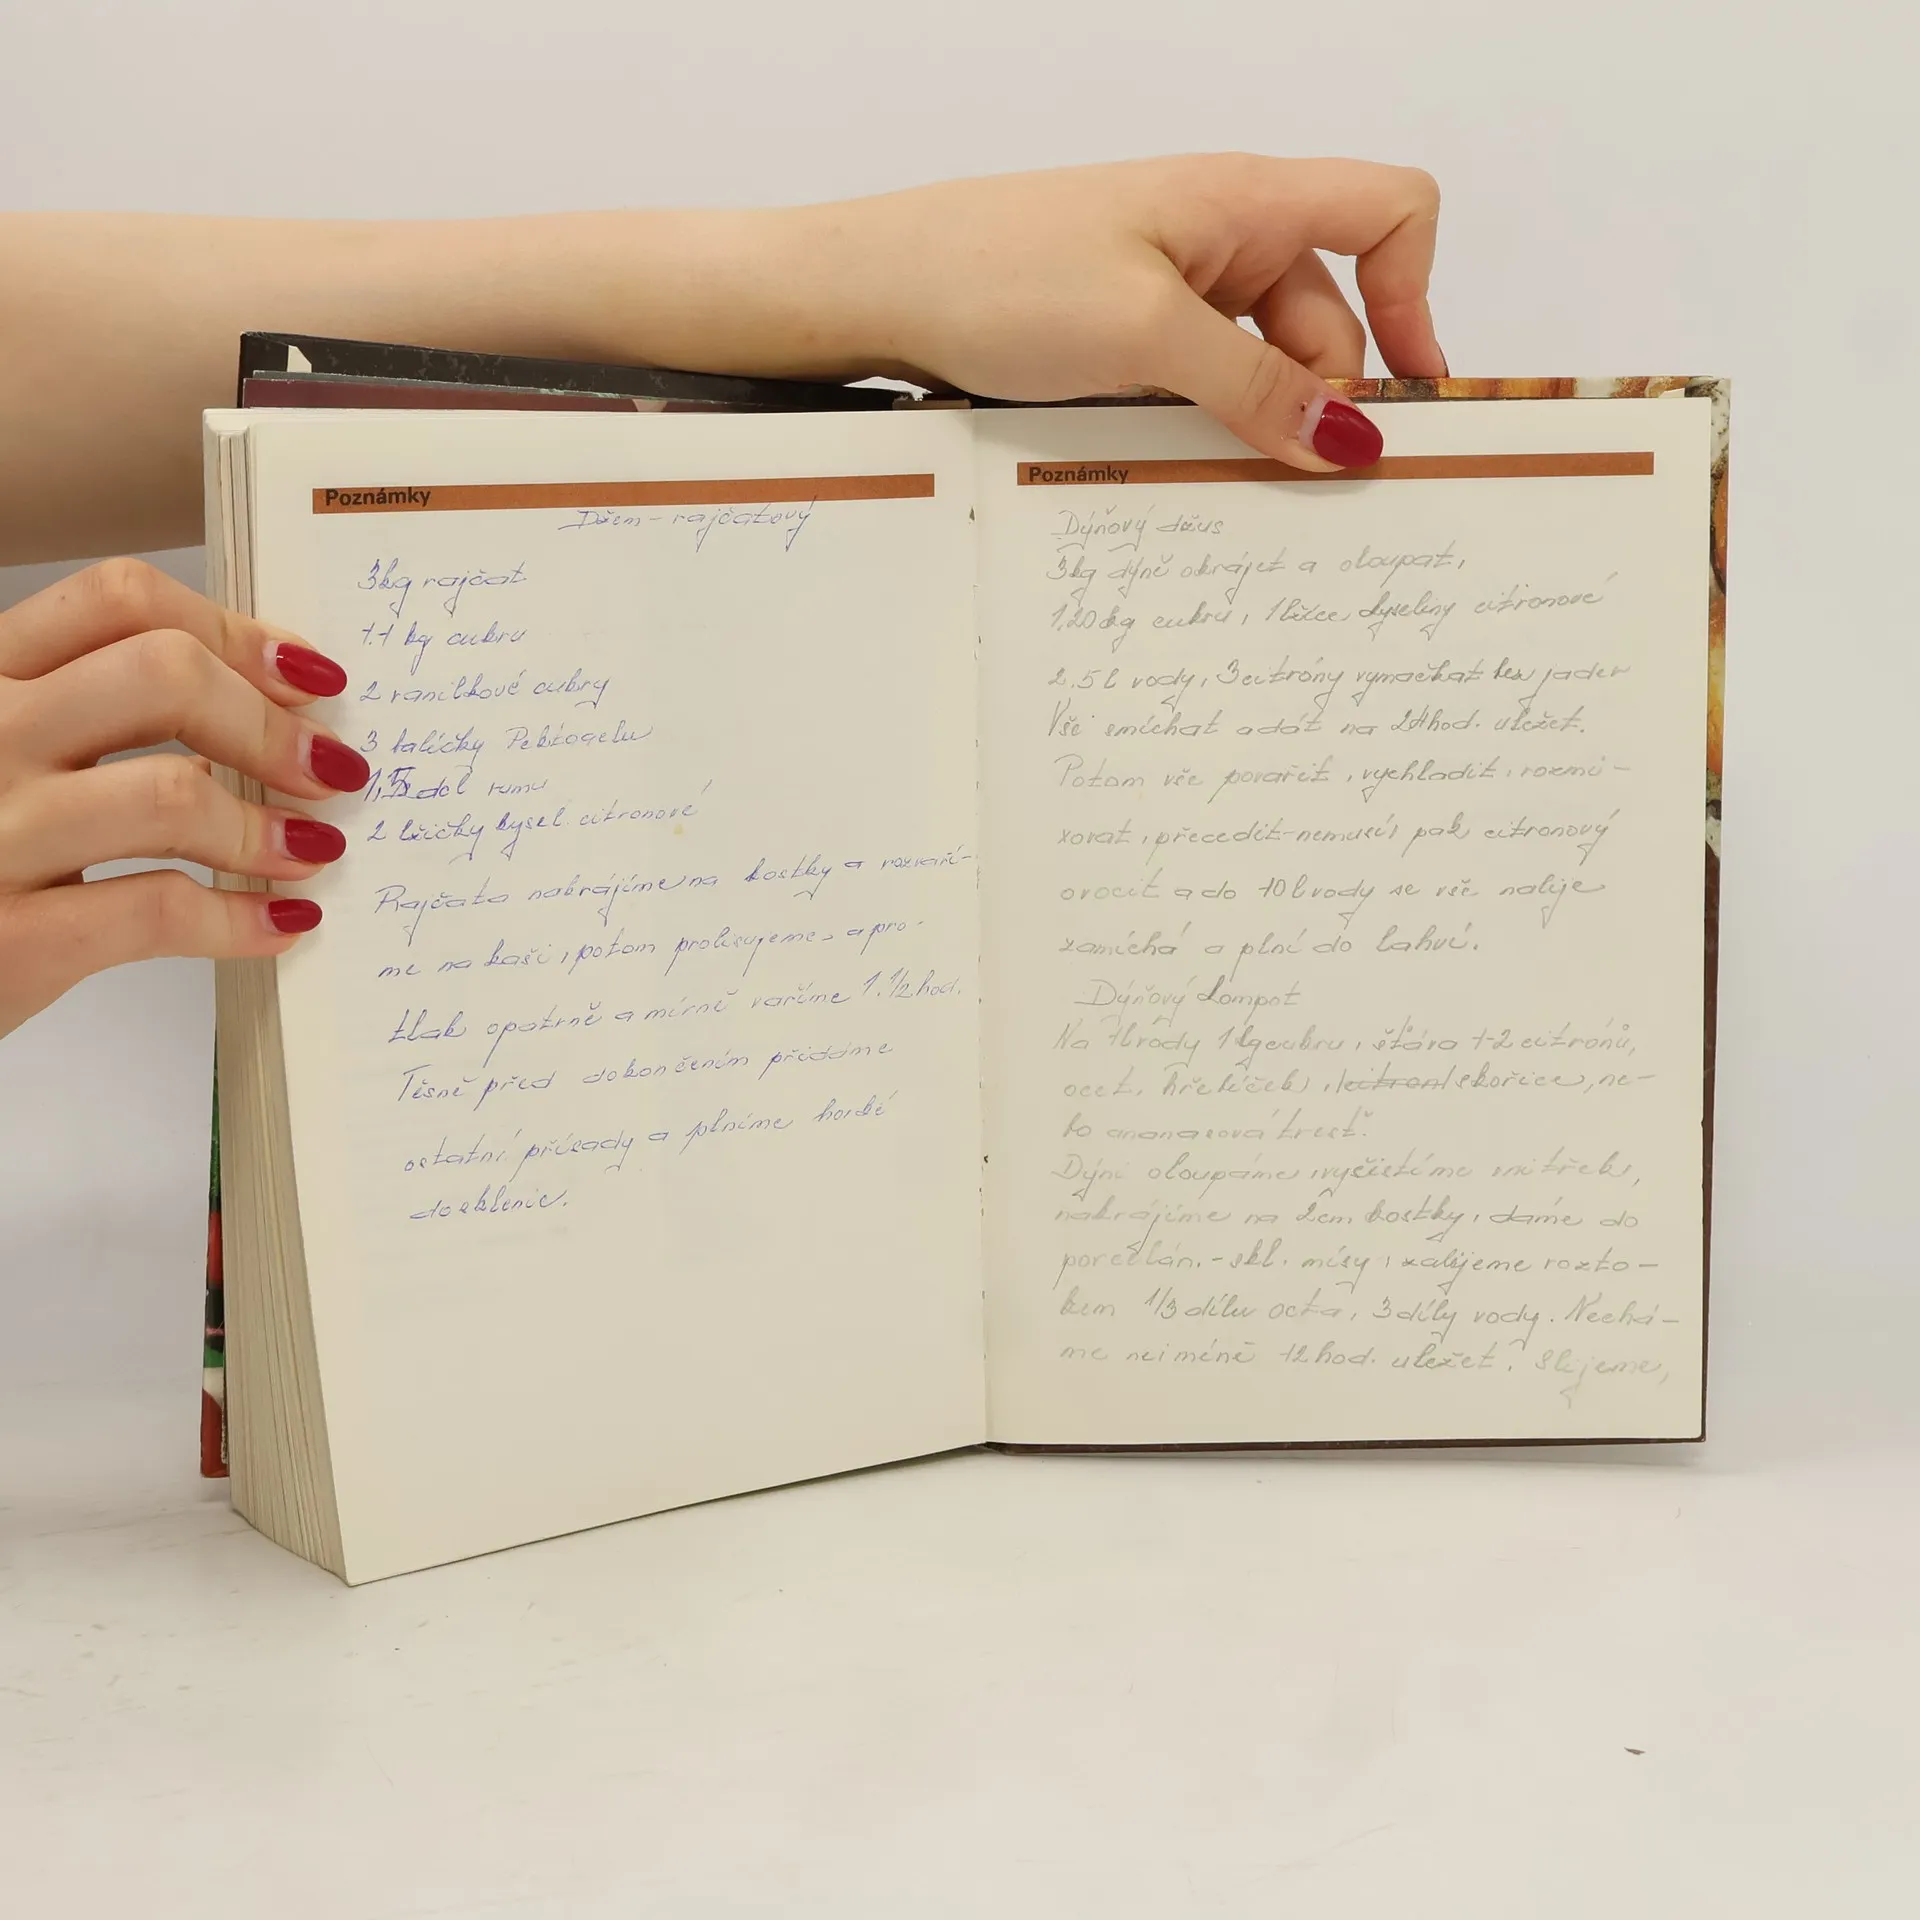 Poznámky
Džem - rajčatový
3kg rajčat
1.1 kg cukru
2 vanilkové cukry
3 balíčky Pektogelu
1,5 dcl rumu
2 lžičky kysel. citronové
Rajčata nakrájíme na kostky a rozvaří-
me na kaši, potom prolisujeme, a pro-
tlak opatrně a mírně vaříme 1.1/2 hod.
Těsně před dokončením přidáme
ostatní přísady a plníme horké
do sklenic.
Poznámky
Dýňový džus
3kg dýně okrájet a oloupat,
1,20kg cukru, 1 lžíce kyseliny citronové
2.5l vody, 3 citróny vymačkat bez jader
Vše smíchat a dát na 24hod. uležet.
Potom vše povařit, vychladit, rozmi-
xovat, přecedit-nemusí, pak citronový
ovocit a do 10l vody se vše nalije
zamíchá a plní do lahví.
Dýňový kompot
Na 1l vody 1kg cukru, šťáva 1-2 citrónů,
ocet, hřebíček, citron skořice, ne-
bo ananasová tresť.
Dýni oloupáme, vyčistíme vnitřek,
nakrájíme na 2cm kostky, dáme do
porcelán. - skl. mísy, zalijeme rozto-
kem 1/3 dílu octa, 3 díly vody. Nechá-
me nejméně 12 hod. uležet. Slijeme,